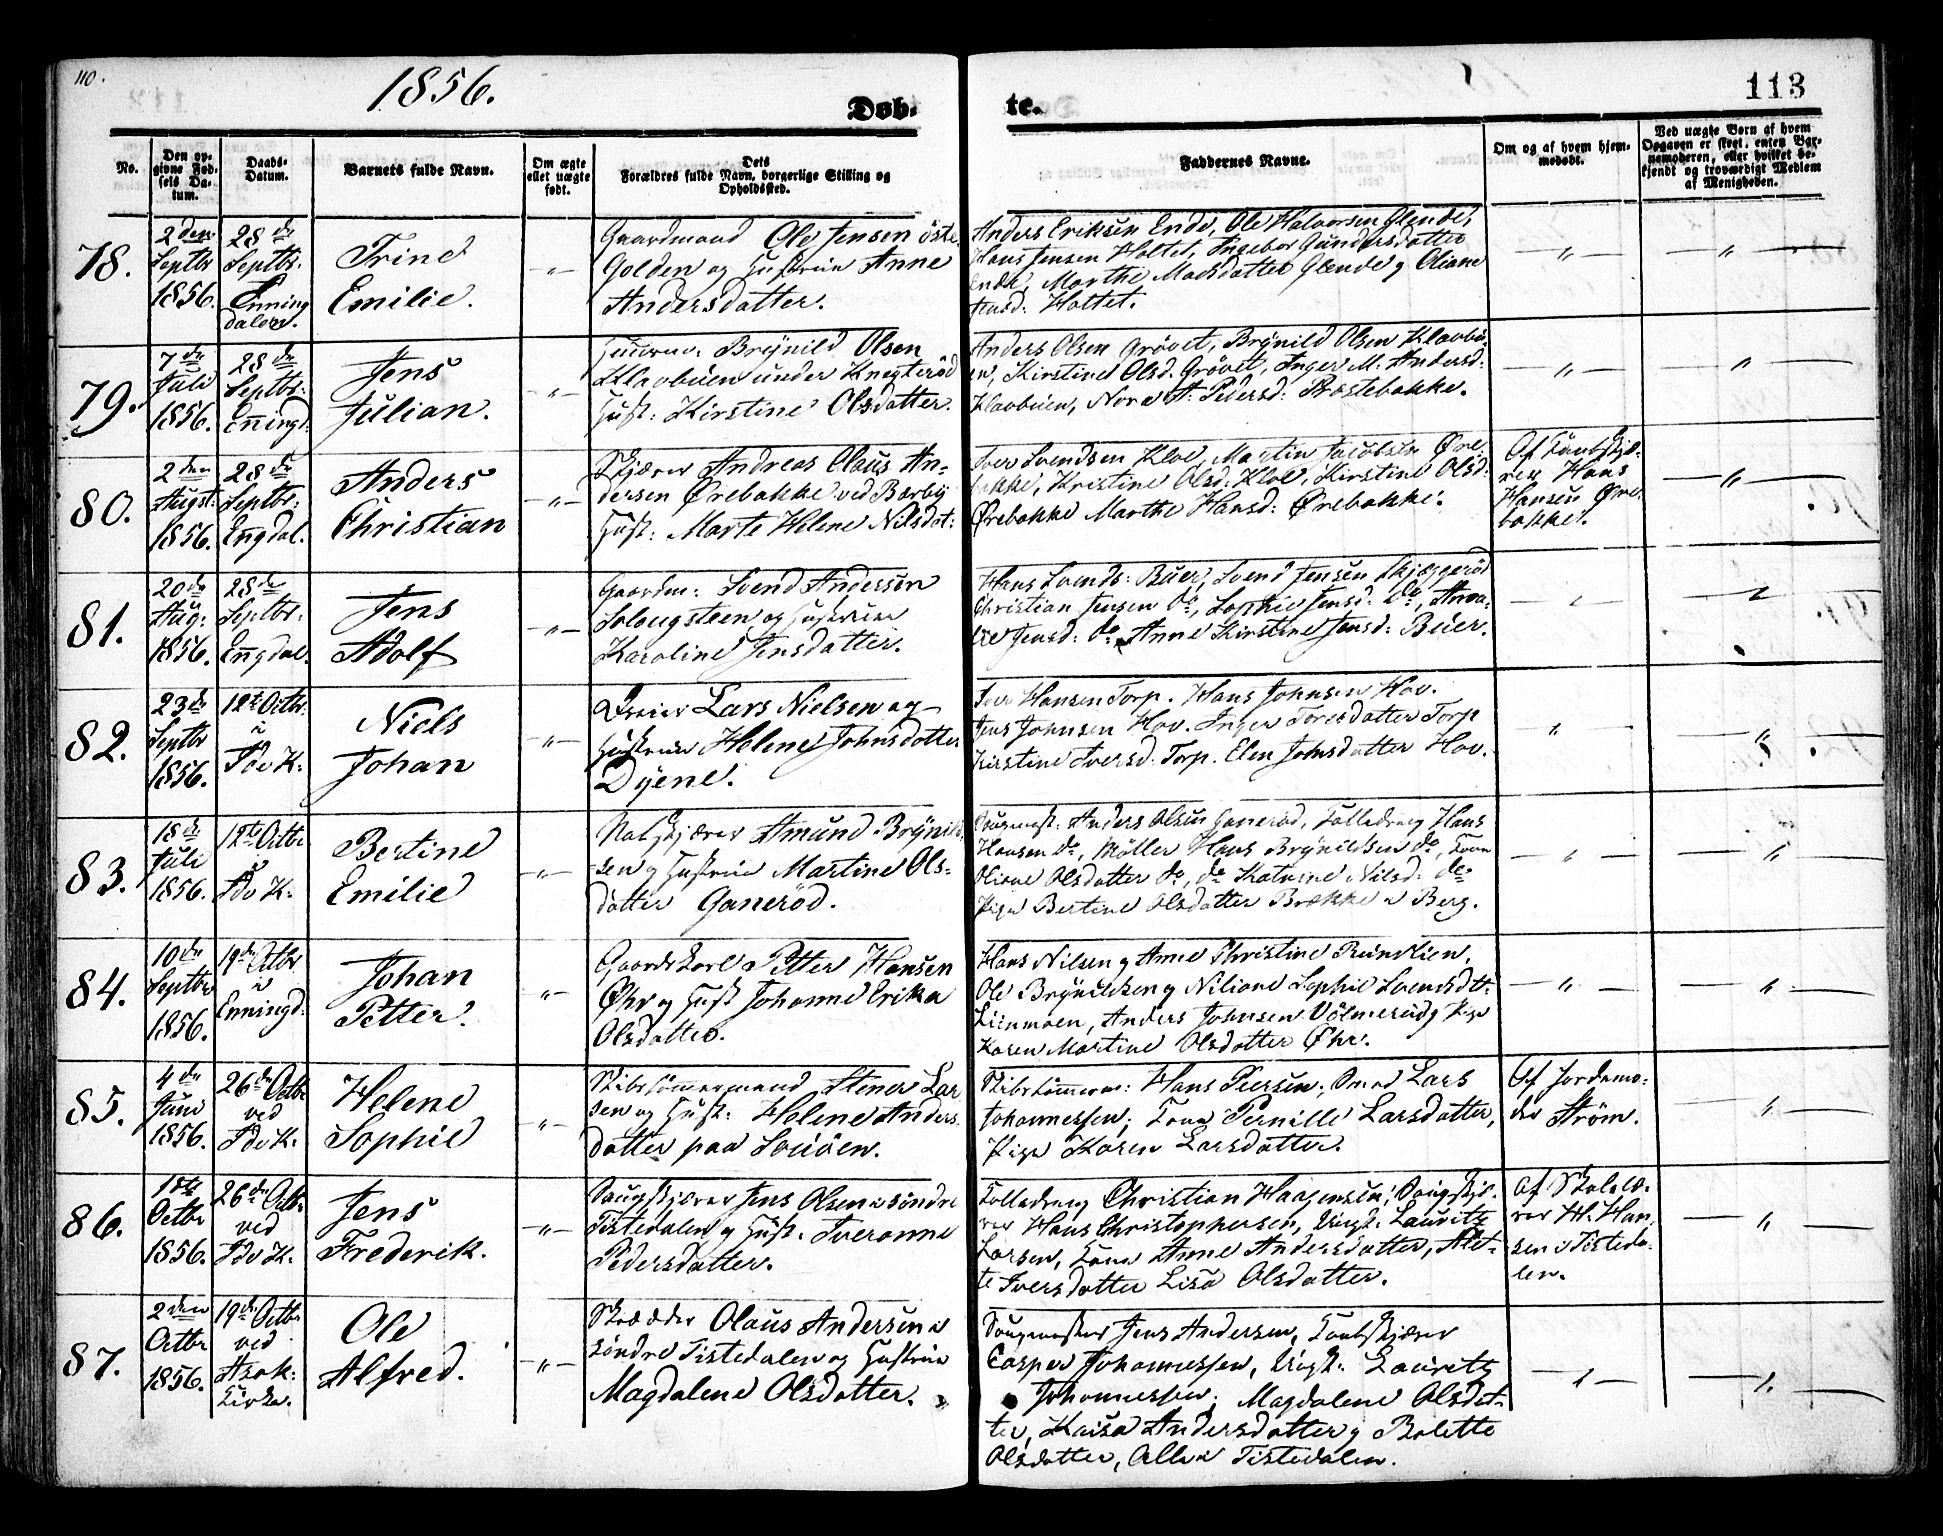 110.
1856.
Døb-
te.
113
No.
Den op-
givne Fød-
sels Da-
tum.
Daabs-
Datum.
Barnets fulde Navn.
Om ægte
eller uægte
født.
Dets
Forældres fulde Navn, borgerlige Stilling og
Opholdssted.
Faddernes Navne.
Om og af hvem hjem-
medøbt.
Ved uægte Børn af hvem
Opgaven er skeet, enten Bar-
nemoderen, eller hvilket be-
kjendt og troværdigt Medlem
af Menigheden.
78.
2den
Septbr
1856.
28de
Septbr.
Enning
dalen.
Trine
Emilie.
-"-
Gaardmand Ole Jensen øste
Golden og Hustrue Anne
Andersdatter.
Anders Eriksen Ende, Ole Halvorsen Glende,
Hans Jensen Holtet, Ingebor Gundersdatter
Ende, Marthe Madsdatter Glende og Oliane
Holtet.
-"-
-"-
79.
7de
Juli
1856.
28de
Septbr.
Enningd.
Jens
Julian.
-"-
Brynild Olsen
Klavbuen under Knegterød
Hust: Kirstine Olsdatter.
Anders Olsen Grøvet, Brynild Olsen Klavbu-
en, Kirstine Olsd. Grøvet, Inger M. Andersd:
Klavbuen, Nora A. Pedersd: Brostebakke.
-"-
-"-
80.
2den
Augst:
1856.
28de
Septbr:
Engdal.
Anders
Christian
-"-
Skjærer Andreas Olaus An-
dersen Ørebakke ved Bærby
Hust: Marte Helene Nilsdat:
Iver Svendsen Kloe, Martin Jacobsen Øre-
bakke, Kristine Olsd: Kloe, Kirstine Olsd:
Ørebakke Marthe Hansd: Ørebakke.
Af
Hans
Hansen Øre-
bakke.
-"-
81.
20de
Aug:
1856.
28de
Septbr:
Engdal.
Jens
Adolf
-"-
Gaardm: Svend Andersen
Solaugsteen og Hustrue
Karoline Jensdatter.
Hans Svends: Buer, Svend Jensen Skjæggerød
Christian Jensen do, Sophie Jensd: do,
Jensd: do Anne Kirstine Jensd: Buer.
-"-
-"-
82.
23de
Septbr
1856.
12te Octbr.
i
Ide K:
Niels
Johan
-"-
Lars Nielsen og
Hustrue Helene Johnsdatter
Dyene.
Iver Hansen Torp. Hans Johnsen Hov.
Jens Johnsen Hov. Inger Toresdatter Torp
Kirstine Iversd. Torp. Elen Johnsdatter Hov.
"
-"-
83.
18de
Juli
1856.
12te Octbr
i
Ide K:
Bertine
Emilie
-"-
Amund Brynild-
sen og Hustrue Martine Ols-
datter Ganerød.
Anders Olsen Ganerød, Hans
Hansen do, Møller Hans Brynildsen do, Kone
Oliane Olsdatter do, do Katrine Nilsd: do
Pige Bertine Olsdatter Brække i Berg.
-"-
-"-
84.
10de
Septbr
1856.
19de Octbr
i
Enningd.
Johan
Petter.
-"-
Gaardskarl Petter Hansen
Øhr og Hust Johanne Erika
Olsdatter.
Hans Nilsen og Anne Christine
Ole Brynildsen og Niliane Sophie Svendsdt.
Liinmoen, Anders Johnsen Volmerud og Pige
Karen Martine Olsdatter Øhr.
-"-
-"-
85.
4de
Juni
1856.
26de Octbr
ved
Ide K:
Helene
Sophie
-"-
Skibstømmermand Stener Lar
sen og Hust: Helene Anders
datter paa Sauøen.
Skibstømmerm: Hans Piersen; Smed Lars
Johannessen; Kone Pernille Larsdatter,
Pige Karen Larsdatter.
Af Jordemo-
der Strøm.
-"-
86.
18de
Octbr
1856.
26de Octb.
ved
Ide K:
Jens
Frederik.
-"-
Saugskjærer Jens Olsen i søndre
Tistedalen og Hust: Iveranne
Pedersdatter.
Tolledreng Christian Haagensen; Saugskjæ-
rer Hans Christophersen, Ungk: Lauritz
Larsen, Kone Anne Andersdatter, Alet-
te Iversdatter Lisa Olsdatter.
Af Skolelæ-
rer H. Han-
sen i Tisteda-
len.
-"-
87.
2den
Octbr
1856.
19de Octbr
ved
Asak:
Kirke.
Ole
Alfred.
-"-
Skrædder Olaus Andersen i
søndre Tistedalen og Hustrue
Magdalene Olsdatter.
Saugmester Jens Andersen,
Casper Johannessen, Ungk: Lauritz
Johannessen; Magdalene Olsdat-
ter, Kaisa Andersdatter og Bolette
Olsdatter, Alle i Tistedalen.
-"-
-"-